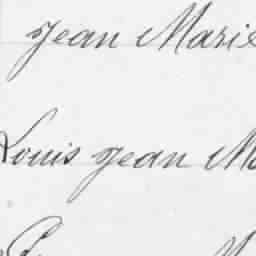 Jean Marie
Louis Jean